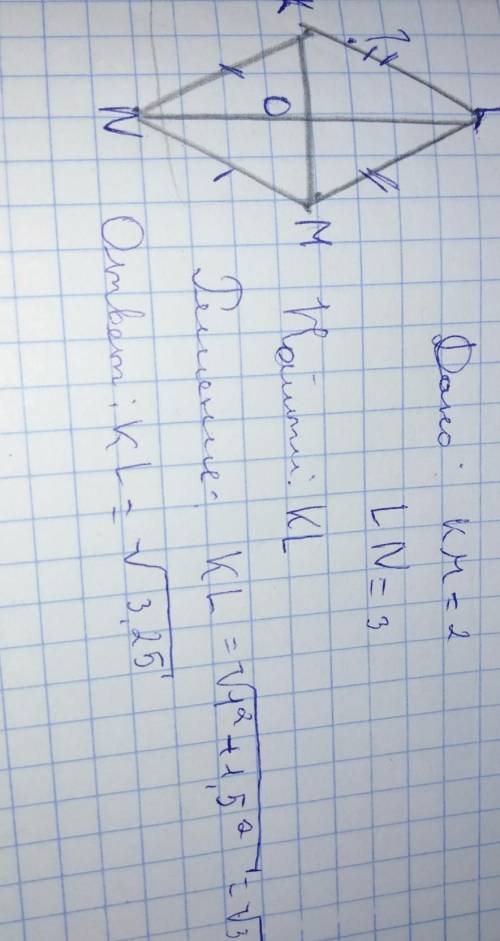 K
?
L
O
N
M
Дано: KM = 2
LN = 3
Найти: KL
Решение: KL = √1² + 1,5² = √3
Ответ: KL = √3,25